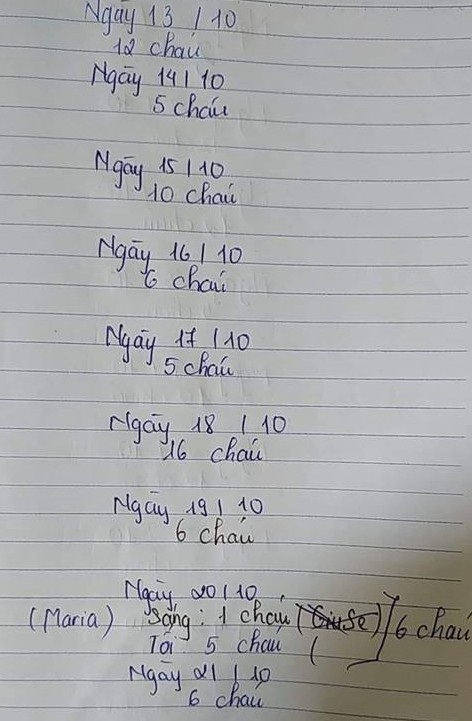 Ngày 13 / 10
12 cháu
Ngày 14 / 10
5 cháu
Ngày 15 / 10
10 cháu
Ngày 16 / 10
6 cháu
Ngày 17 / 10
5 cháu
Ngày 18 / 10
16 cháu
Ngày 19 / 10
6 cháu
Ngày 20 / 10
(Maria) Sáng: 1 cháu (GiuSe) 6 cháu
Tối 5 cháu (
Ngày 21 / 10
6 cháu